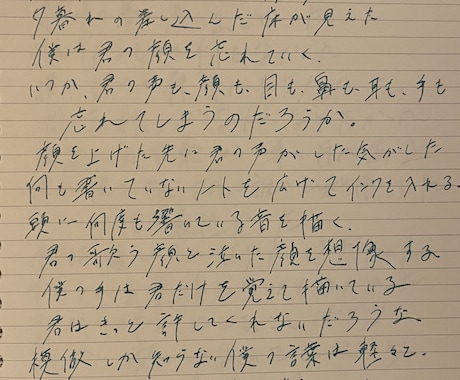 夕暮れの差し込んだ床が見えた
僕は君の顔を忘れていく.
いつか、君の声も、顔も、目も、鼻も、耳も、手も
忘れてしまうのだろうか。
顔を上げた先に君の声がした気がした
何も書いていないノートを広げてインクを入れる.
頭に何度も響いている音を描く.
君の歌う顔と泣いた顔を想像する
僕の手は君だけを覚えて描いている
君はきっと許してくれないだろうな
模倣しか知らない僕の言葉は軽々と.